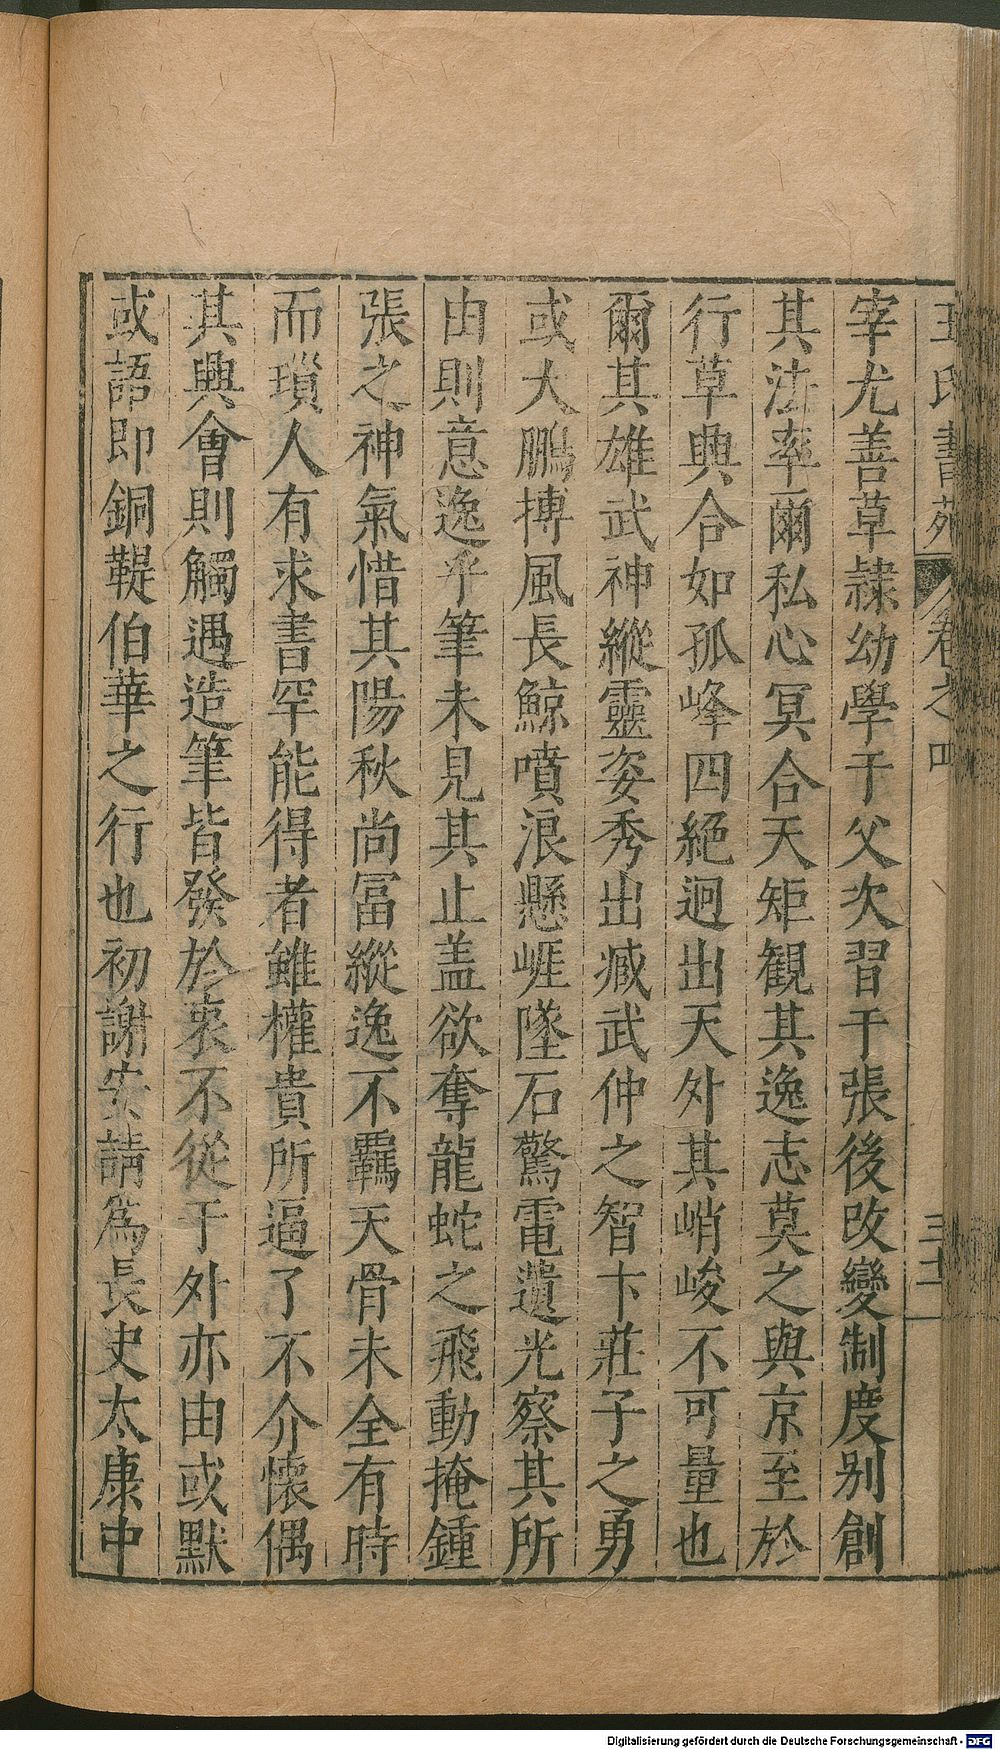 王氏書苑 卷之四 三十二
宰尤善草隸幼學于父次習于張後改變制度別創
其法率爾私心冥合天矩觀其逸志莫之與京至於
行草興合如孤峰四絕迥出天外其峭峻不可量也
爾其雄武神縱靈姿秀出臧武仲之智卞莊子之勇
或大鵬摶風長鯨噴浪懸崖墜石驚電遺光察其所
由則意逸乎筆未見其止盖欲奪龍蛇之飛動掩鍾
張之神氣惜其陽秋尚富縱逸不羈天骨未全有時
而瑣人有求書罕能得者雖權貴所逼了不介懷偶
其興會則觸遇造筆皆發於衷不從于外亦由或默
或語即銅鞮伯華之行也初謝安請為長史太康中
Digitalisierung gefördert durch die Deutsche Forschungsgemeinschaft - DFG